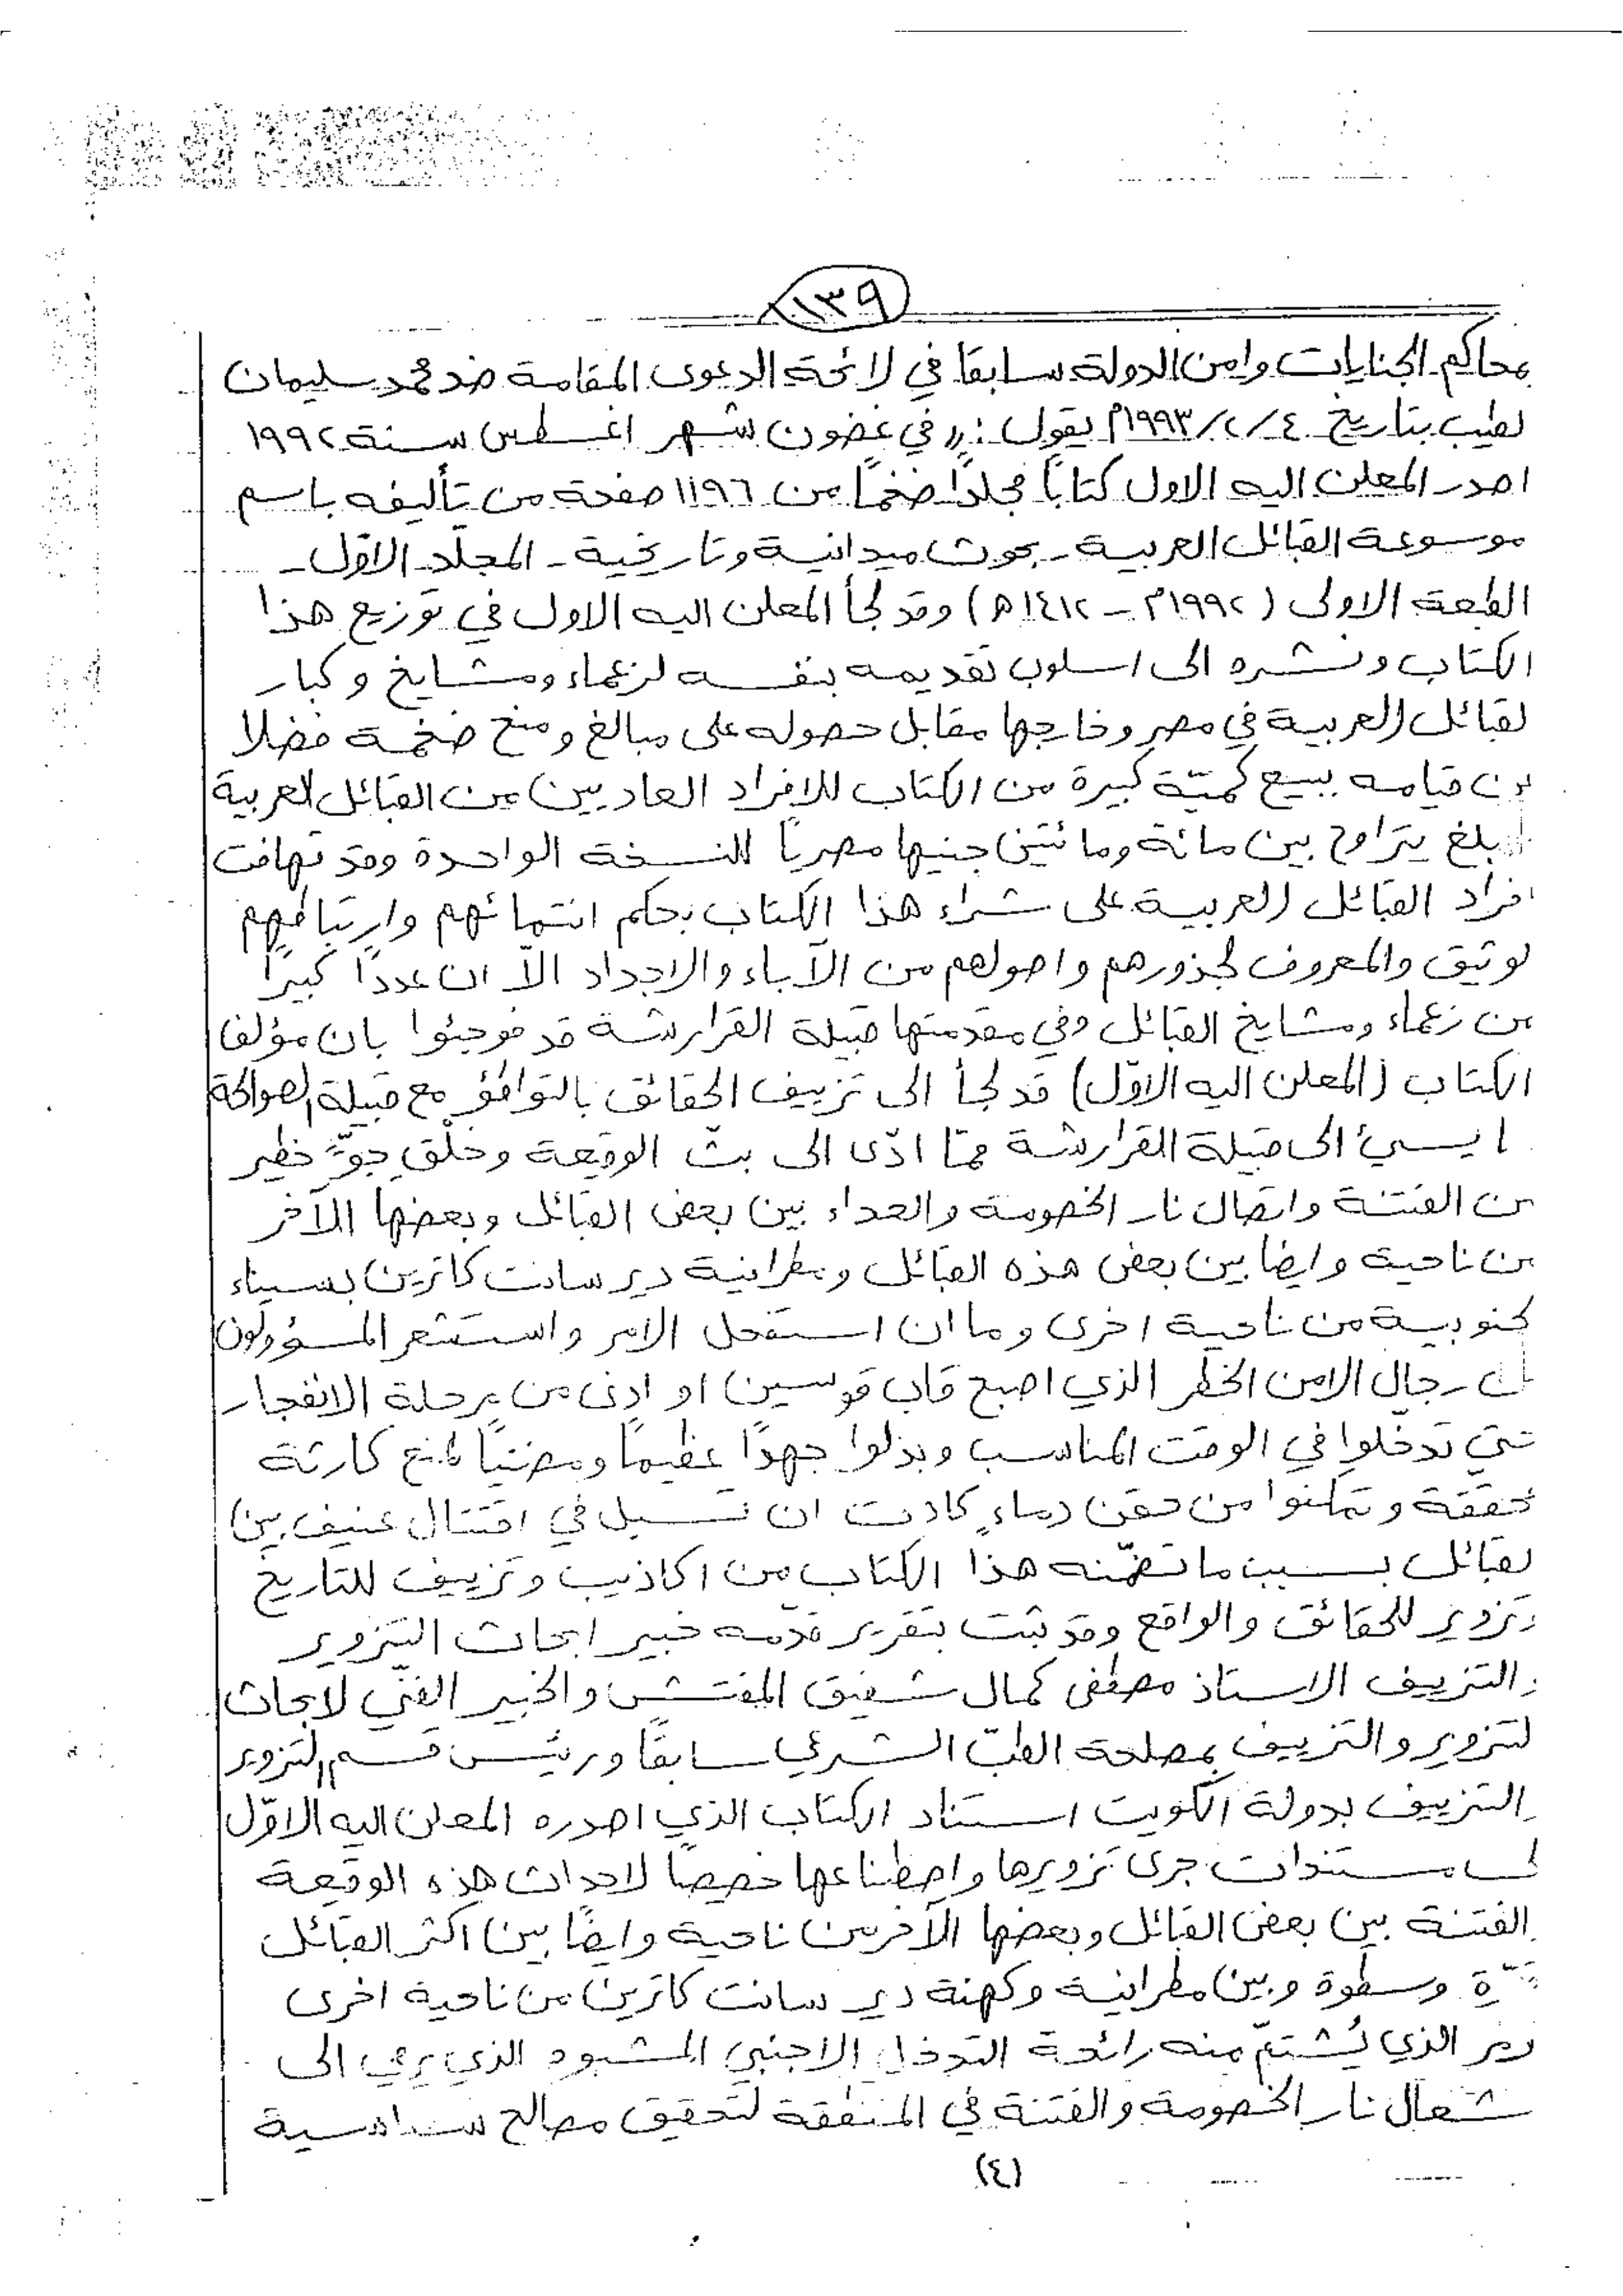 ١٣٩
بمحاكم الجنايات وامن الدولة سابقا في لائحة الدعوى المقامة ضد محمد سليمان
لطيب بتاريخ ٤/٢/١٩٩٣م يقول : (( في غضون شهر اغسطس سنة ١٩٩٢
اصدر المعلن اليه الاول كتاباً مجلداً ضخماً من ١١٩٦ صفحة من تأليفه باسم
موسوعة القبائل العربية - بحوث ميدانية وتاريخية - المجلّد الاوّل -
الطبعة الاولى ( ١٩٩٢م - ١٤١٢ه ) وقد لجأ المعلن اليه الاول في توزيع هذا
الكتاب ونشره الى اسلوب تقديمه بنفسه لزعماء ومشايخ وكبار
لقبائل العربية في مصر وخارجها مقابل حصوله على مبالغ ومنح ضخمة فضلا
ن قيامه ببيع كميّة كبيرة من الكتاب للافراد العاديين من القبائل العربية
بلغ يتراوح بين مائة ومائتين جنيها مصرياً للنسخة الواحدة وقد تهافت
افراد القبائل العربية على شراء هذا الكتاب بحكم انتمائهم وارتباطهم
لوثيق والمعروف لجذورهم واصولهم من الآباء والاجداد الاّ ان عدداً كبيراً
من زعماء ومشايخ القبائل وفي مقدمتها قبيلة القرارشة قد فوجئوا بان مؤلف
الكتاب (المعلن اليه الاوّل) قد لجأ الى تزييف الحقائق بالتواطؤ مع قبيلة الصوالحة
ا يسيئ الى قبيلة القرارشة ممّا ادّى الى بثّ الوقيعة وخلق جوّ خطير
من الفتنة واتصال نار الخصومة والعداء بين بعض القبائل وبعضها الآخر
من ناحية وايضا بين بعض هذه القبائل ومطرانية دير سانت كاترين بسيناء
لجنوبية من ناحية اخرى وما ان استفحل الامر واستشعر المسؤولون
رجال الامن الخطر الذي اصبح قاب قوسين او ادنى من مرحلة الانفجار
تى تدخّلوا في الوقت المناسب وبذلوا جهداً عظيماً ومضنياً لمنع كارثة
محققة وتمكنوا من حقن دماءٍ كادت ان تسيل في اقتتال عنيف بين
لقبائل بسبب ما تضمّنه هذا الكتاب من اكاذيب وتزييف للتاريخ
وتزوير للحقائق والواقع وقد ثبت بتقرير قدّمه خبير ابحاث التزوير
والتزييف الاستاذ مصطفى كمال شفيق المفتش والخبير الفنّي لابحاث
لتزوير والتزييف بمصلحة الطبّ الشرعي سابقاً ورئيس قسم التزوير
والتزييف بدولة الكويت استناد الكتاب الذي اصدره المعلن اليه الاوّل
لى مستندات جرى تزويرها واصطناعها خصيصاً لاحداث هذه الوقيعة
الفتنة بين بعض القبائل وبعضها الآخر من ناحية وايضاً بين اكثر القبائل
وّة وسطوة وبين مطرانية وكهنة دير سانت كاترين من ناحية اخرى
لامر الذي يُشتمّ منه رائحة التدخل الاجنبي المشبوه الذي يرمي الى
شعال نار الخصومة والفتنة في المنطقة لتحقيق مصالح سياسية
(٤)